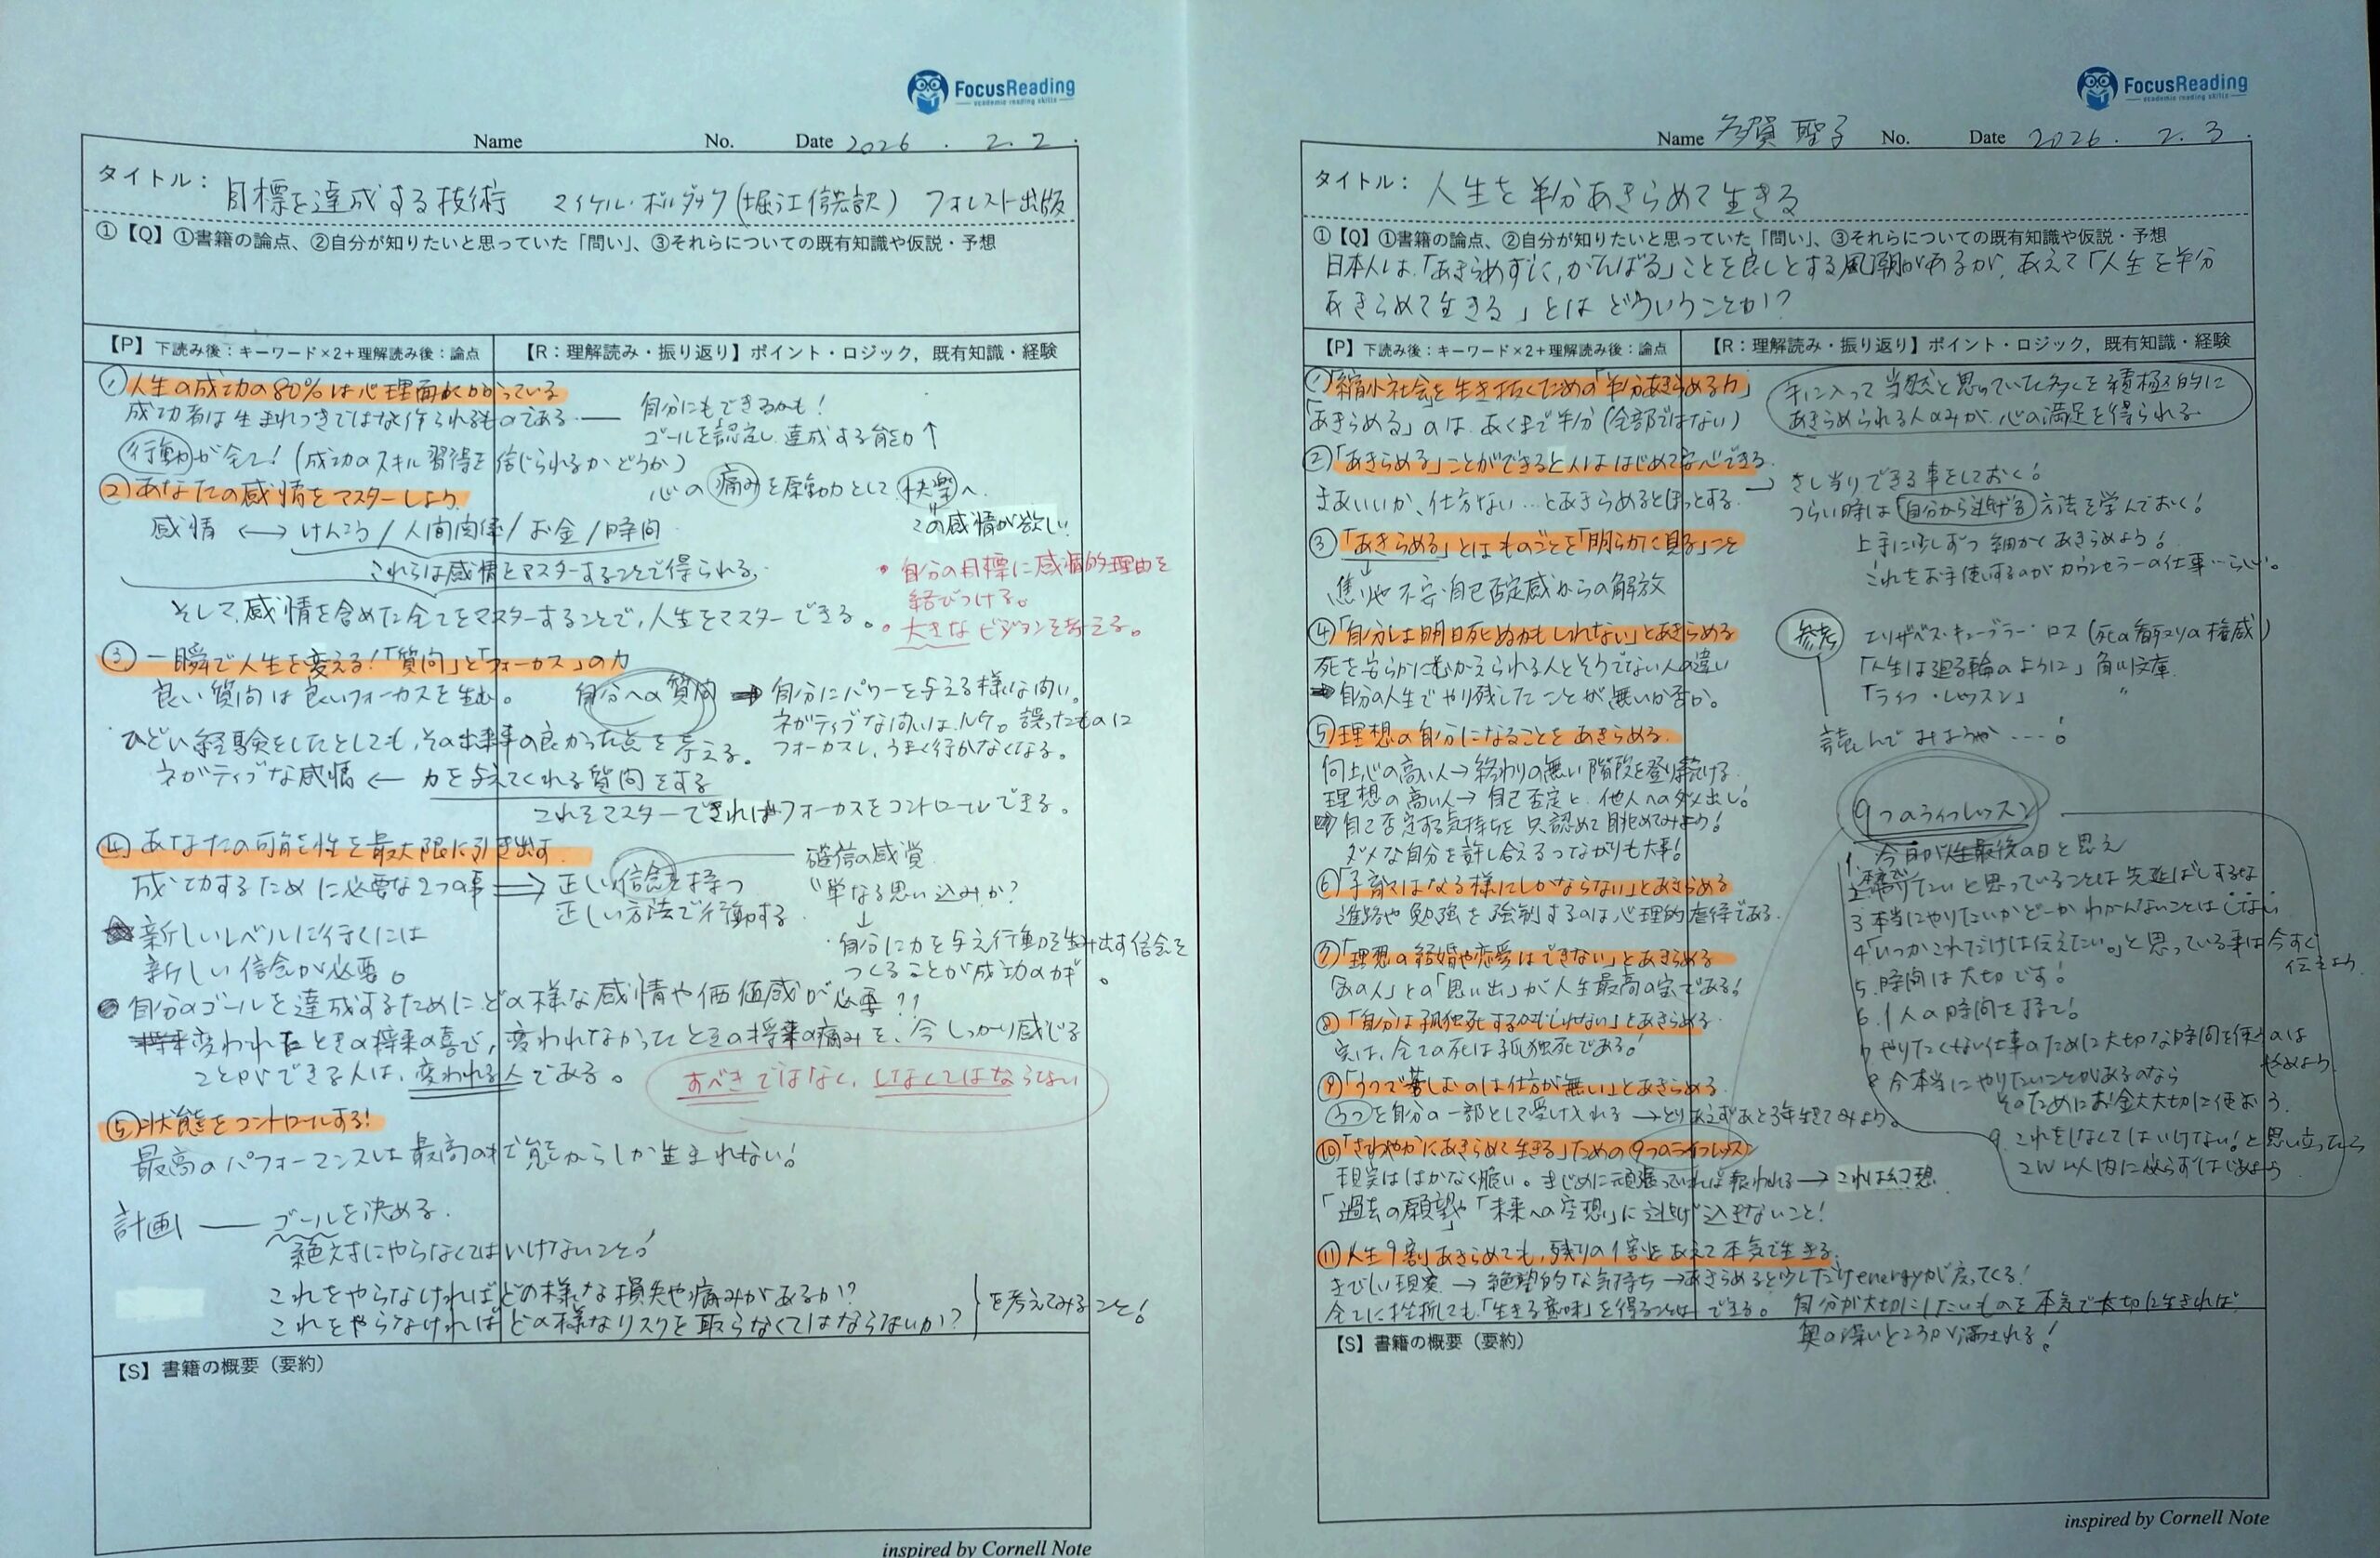 FocusReading
academic reading skills
Name No. Date 2026 . 2. 2 .
タイトル： 目標を達成する技術 マイケル・ボルダック(堀江信宏訳) フォレスト出版
①【Q】①書籍の論点、②自分が知りたいと思っていた「問い」、③それらについての既有知識や仮説・予想
【P】下読み後：キーワード×2＋理解読み後：論点
【R：理解読み・振り返り】ポイント・ロジック，既有知識・経験
①人生の成功の80%は心理面にかかっている
成功者は生まれつきではなく作られるものである ― 自分にもできるかも!
ゴールを設定し達成する能力↑
行動が全て! (成功のスキル習得を信じられるかどうか)
心の痛みを原動力として快楽へ
この感情が欲しい!
②あなたの感情をマスターしよう
感情 ←→ けんこう/人間関係/お金/時間
これらは感情をマスターすることで得られる。
・自分の目標に感情的理由を
結びつける。
・大きなビジョンを考える。
そして、感情を含めた全てをマスターすることで、人生をマスターできる。
③ 一瞬で人生を変える!「質問」と「フォーカス」の力
良い質問は良いフォーカスを生む。 自分への質問 ➡ 自分にパワーを与える様な問い。
ネガティブな問いはNG。誤ったものに
フォーカスし、うまく行かなくなる。
・ひどい経験をしたとしても、その出来事の良かった点を考える。
ネガティブな感情 ← 力を与えてくれる質問をする
これをマスターできればフォーカスをコントロールできる。
④ あなたの可能性を最大限に引き出す
成功するために必要な2つの事 ⇒ 正しい信念を持つ
正しい方法で行動する
確信の感覚
"単なる思い込みか?
↓
・自分に力を与え行動を生み出す信念を
つくることが成功のカギ。
☆新しいレベルに行くには
新しい信念が必要。
●自分のゴールを達成するためにどの様な感情や価値感が必要??
変われたときの将来の喜び，変われなかったときの将来の痛みを、今しっかり感じる
ことができる人は、変われる人である。
すべきではなく、しなくてはならない
⑤状態をコントロールする!
最高のパフォーマンスは最高の状態からしか生まれない!
計画 ― ゴールを決める.
絶対にやらなくてはいけないこと!
これをやらなければどの様な損失や痛みがあるか?
これをやらなければどの様なリスクを取らなくてはならないか? } を考えてみること!
【S】書籍の概要（要約）
inspired by Cornell Note
FocusReading
academic reading skills
Name 多賀 聖子 No. Date 2026. 2. 3 .
タイトル： 人生を半分あきらめて生きる
①【Q】①書籍の論点、②自分が知りたいと思っていた「問い」、③それらについての既有知識や仮説・予想
日本人は、「あきらめずに、がんばる」ことを良しとする風潮があるが、あえて「人生を半分
あきらめて生きる」とはどういうことか!?
【P】下読み後：キーワード×2＋理解読み後：論点
【R：理解読み・振り返り】ポイント・ロジック，既有知識・経験
①「縮小社会」を生き抜くための「半分あきらめる力」
「あきらめる」のは、あくまで半分(全部ではない)
手に入って当然と思っていた多くを積極的に
あきらめられる人のみが、心の満足を得られる
②「あきらめる」ことができると人ははじめて安心できる.
まあいいか、仕方ない…とあきらめるとほっとする.
→ さし当りできる事をしておく!
つらい時は自分から逃げる方法を学んでおく!
上手に少しずつ細かくあきらめよう!
これをお手伝いするのがカウンセラーの仕事…らしい。
③「あきらめる」とはものごとを「明らかに見る」こと
↓
焦りや不安・自己否定感からの解放
④「自分は明日死ぬかもしれない」とあきらめる
死を安らかにむかえられる人とそうでない人の違い
➡自分の人生でやり残したことが無いか否か。
参考 エリザベス・キューブラー・ロス (死の看取りの権威)
「人生は廻る輪のように」角川文庫
「ライフ・レッスン」 〃
読んでみようか …!
⑤理想の自分になることをあきらめる.
向上心の高い人→終わりの無い階段を登り続ける.
理想の高い人→自己否定と、他人へのダメ出し!
➡自己否定する気持ちを只認めて眺めてみよう!
ダメな自分を許し合えるつながりも大事!
⑥「子育てはなる様にしかならない」とあきらめる
進路や勉強を強制するのは心理的虐待である.
⑦「理想の結婚や恋愛はできない」とあきらめる
「あの人」との「思い出」が人生最高の宝である!
⑧「自分は孤独死するかもしれない」とあきらめる.
実は、全ての死は孤独死である!
⑨「うつで苦しむのは仕方が無い」とあきらめる.
うつを自分の一部として受け入れる → とりあえずあと3年生きてみよう。
⑩「さわやかにあきらめて生きる」ための9つのライフレッスン
現実ははかなく脆い。まじめに頑張っていれば報われる→これは幻想.
「過去の願望」や「未来への空想」に逃げ込まないこと!
⑪人生9割あきらめても、残りの1割をあえて本気で生きる.
きびしい現実 → 絶望的な気持ち →あきらめると少しだけenergyが戻ってくる!
全てに挫折しても、「生きる意味」を得ることはできる。 自分が大切にしたいものを本気で大切に生きれば
奥の深いところが満たされる!
9つのライフレッスン
1. 今日が人生最後の日と思え
2. 本気でやりたいと思っていることは先延ばしするな
3 本当にやりたいかどーかわかんないことはしない
4「いつかこれだけは伝えたい。」と思っている事は今すぐ
伝えよう
5. 時間は大切です!
6. 1人の時間を持て!
7 やりたくない仕事のために大切な時間を使うのは
やめよう
8 今本当にやりたいことがあるのなら
そのためにお金大切に使おう.
9. これをしなくてはいけない!と思い立ったら
2W以内に必らずはじめよう
【S】書籍の概要（要約）
inspired by Cornell Note